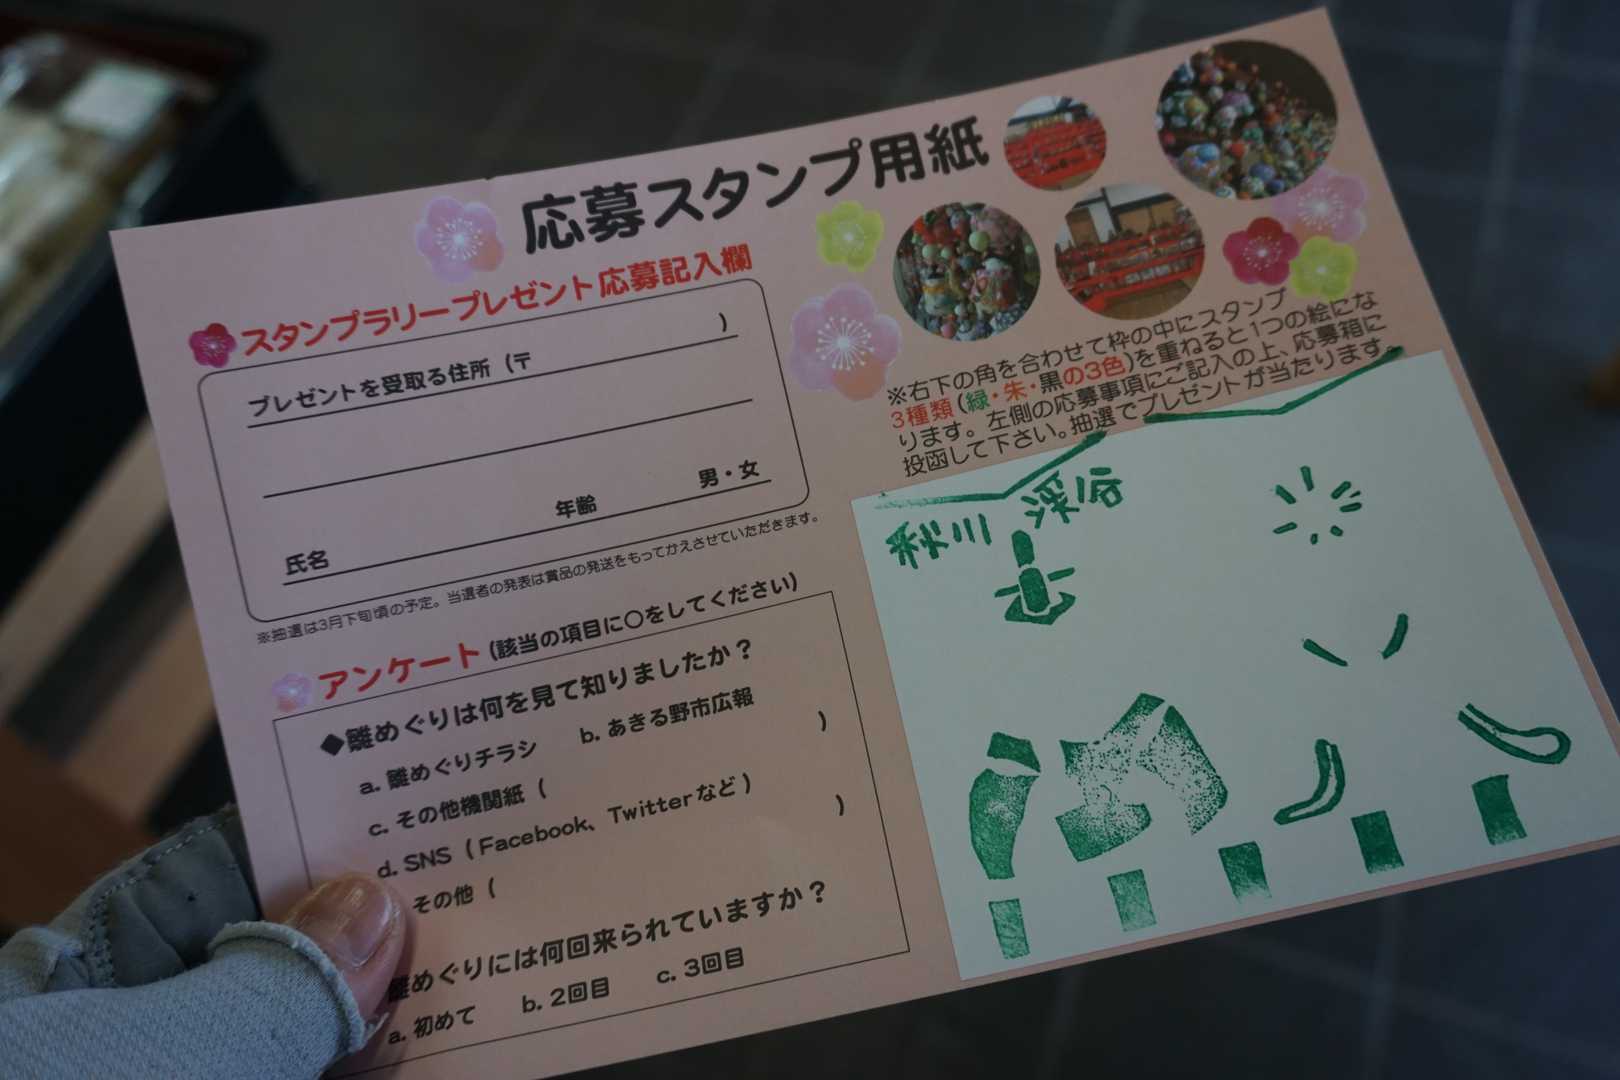 応募スタンプ用紙
スタンプラリープレゼント応募記入欄
プレゼントを受取る住所（〒　　　）
年齢　　　男・女
氏名
※抽選は3月下旬頃の予定。当選者の発表は賞品の発送をもってかえさせていただきます。
アンケート（該当の項目に○をしてください）
◆雛めぐりは何を見て知りましたか？
a. 雛めぐりチラシ　b. あきる野市広報
c. その他機関紙（　　　）
d. SNS（Facebook、Twitterなど）
その他（　　　）
雛めぐりには何回来られていますか？
a. 初めて　b. 2回目　c. 3回目
※右下の角を合わせて枠の中にスタンプ
3種類（緑・朱・黒の3色）を重ねると1つの絵にな
ります。左側の応募事項にご記入の上、応募箱に
投函して下さい。抽選でプレゼントが当たります。
渓谷